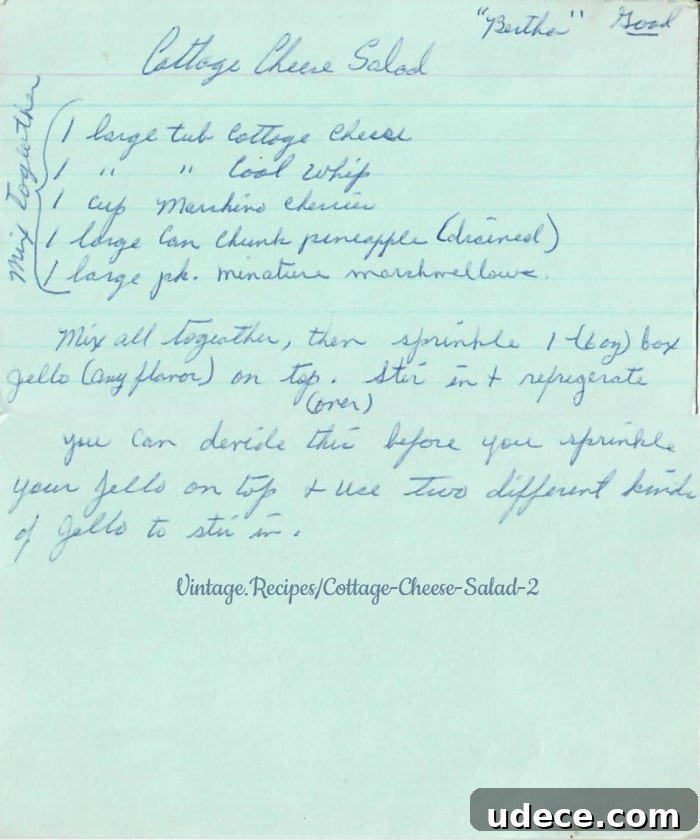 "Bertha" Good
Cottage Cheese Salad
Mix togeather
1 large tub Cottage cheese
1 " " Cool Whip
1 cup Marshino cherries
1 large Can Chunk pineapple (drained)
1 large pk. minature marshmellows.
Mix all togeather, then sprinkle 1 (6 oz) box
Jello (any flavor) on top. Stir in + refrigerate
(over)
you can devide this before you sprinkle
your Jello on top + use two different kinds
of Jello to stir in.
Vintage.Recipes/Cottage-Cheese-Salad-2
udece.com